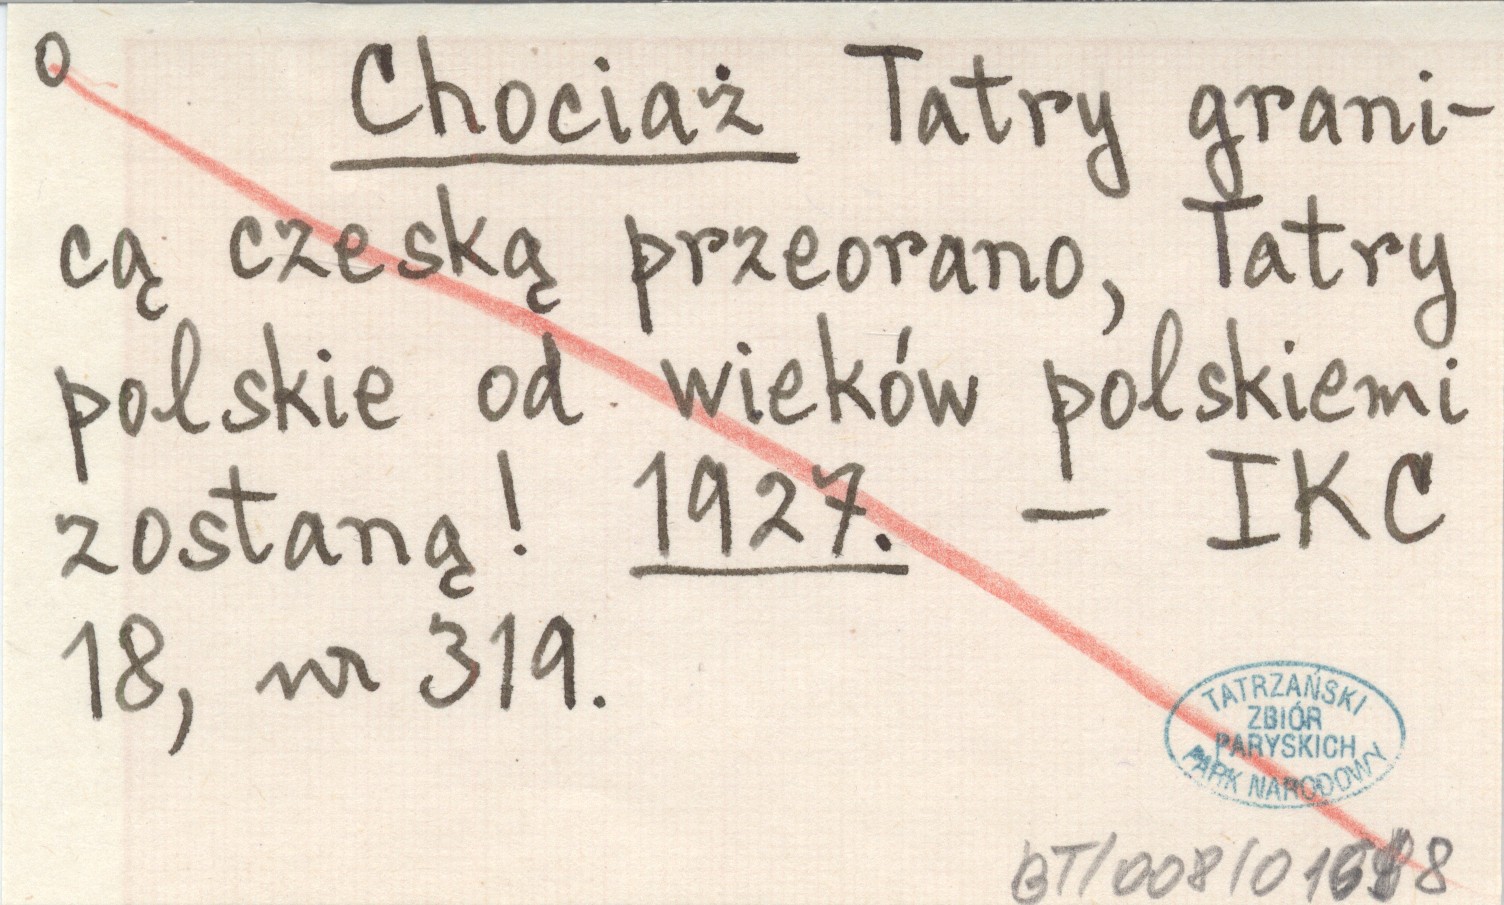 O Chociaż Tatry grani-
cą czeską przeorano, Tatry
polskie od wieków polskiemi
zostaną! 1927. — IKC
18, nr 319.
TATRZAŃSKI
ZBIÓR
PARYSKICH
PARK NARODOWY
BT/008/0